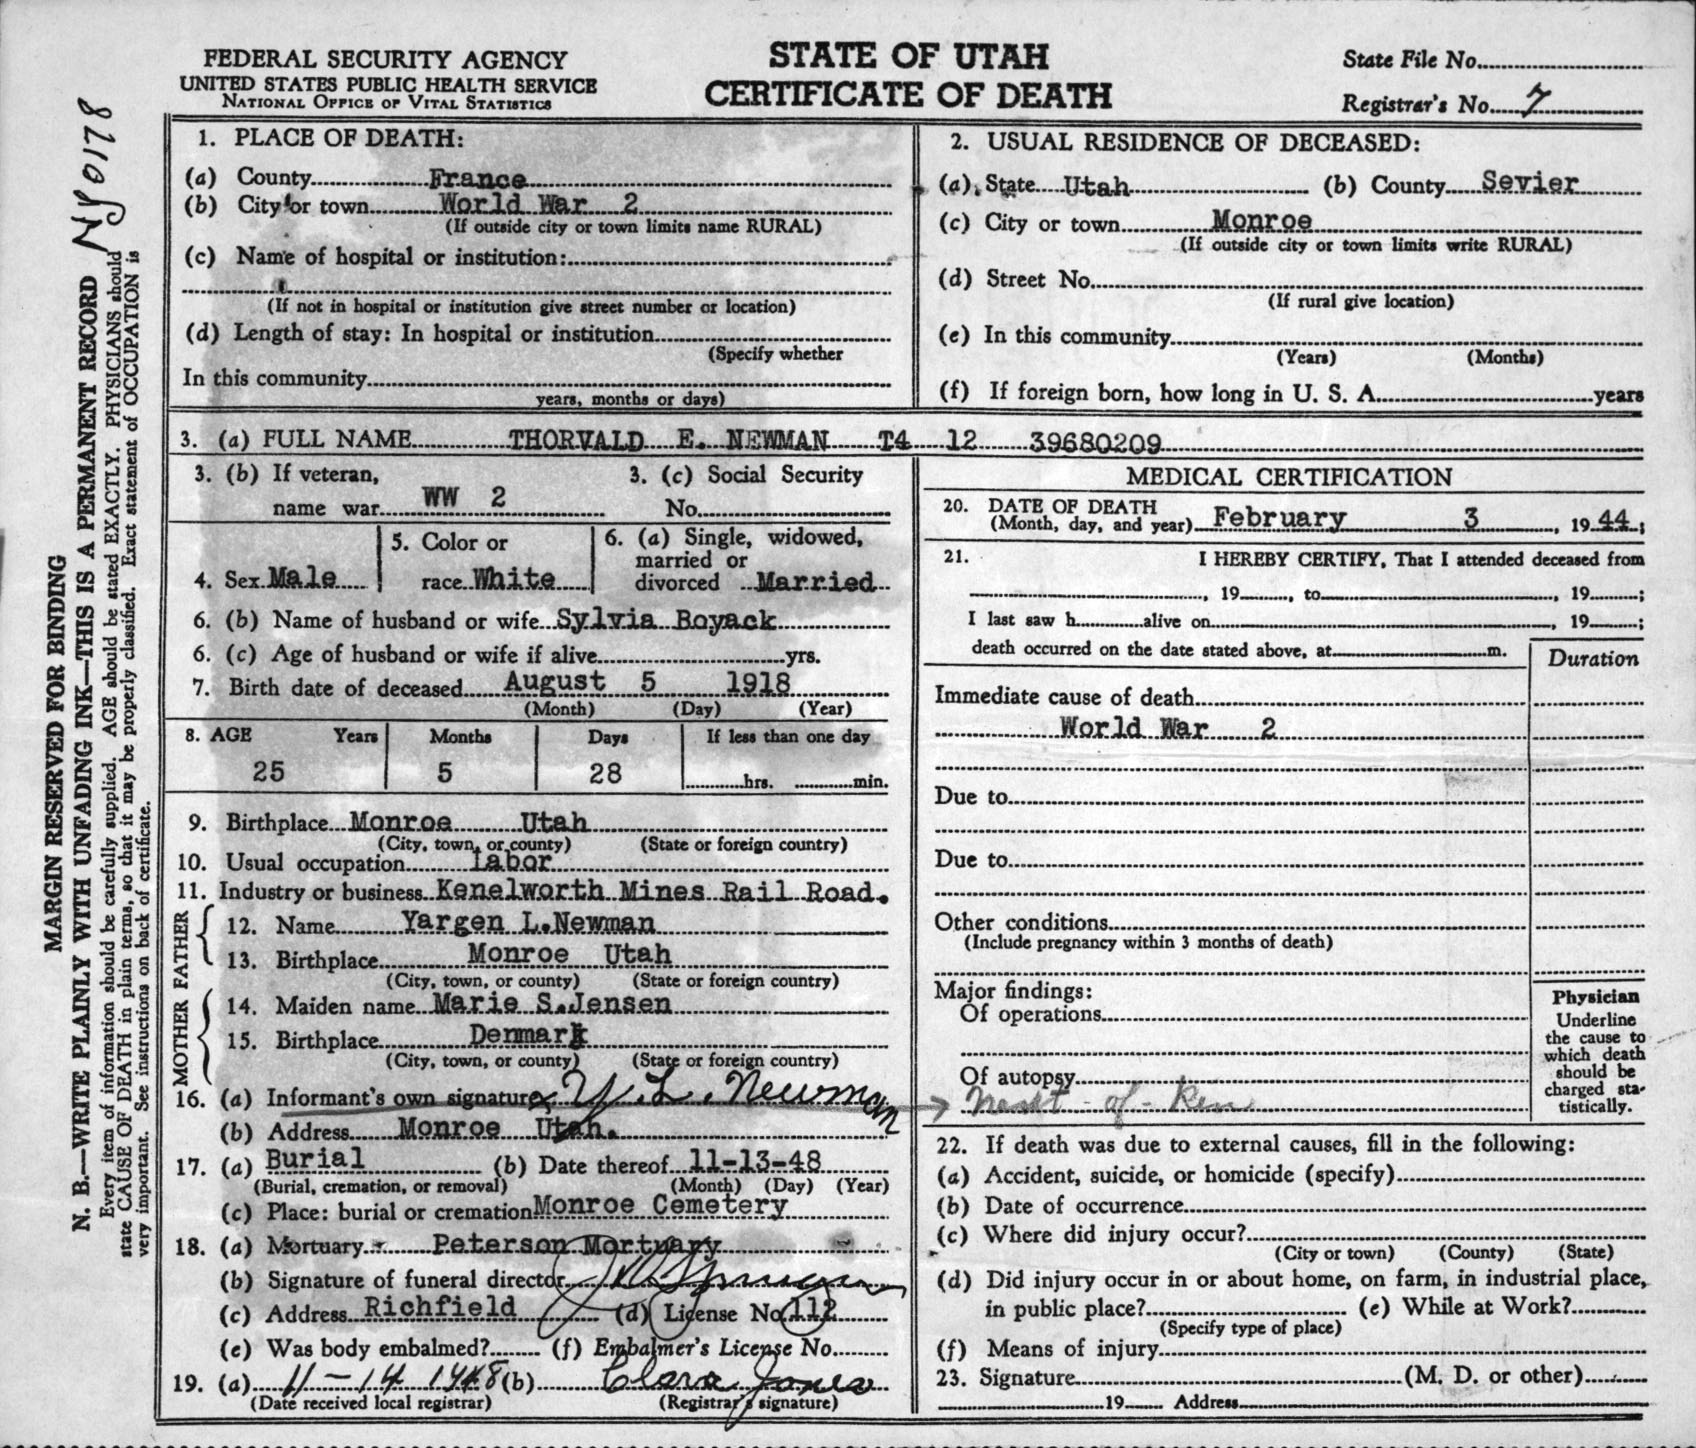 FEDERAL SECURITY AGENCY
UNITED STATES PUBLIC HEALTH SERVICE
NATIONAL OFFICE OF VITAL STATISTICS
STATE OF UTAH
CERTIFICATE OF DEATH
State File No.
Registrar's No. 7
MARGIN RESERVED FOR BINDING
N. B.—WRITE PLAINLY WITH UNFADING INK—THIS IS A PERMANENT RECORD
Every item of information should be carefully supplied. AGE should be stated EXACTLY. PHYSICIANS should
state CAUSE OF DEATH in plain terms, so that it may be properly classified. Exact statement of OCCUPATION is
very important. See instructions on back of certificate.
1. PLACE OF DEATH:
(a) County France
(b) City or town World War 2
(If outside city or town limits name RURAL)
(c) Name of hospital or institution:
(If not in hospital or institution give street number or location)
(d) Length of stay: In hospital or institution
(Specify whether
In this community
years, months or days)
2. USUAL RESIDENCE OF DECEASED:
(a) State Utah (b) County Sevier
(c) City or town Monroe
(If outside city or town limits write RURAL)
(d) Street No.
(If rural give location)
(e) In this community
(Years) (Months)
(f) If foreign born, how long in U. S. A. years
3. (a) FULL NAME THORVALD E. NEWMAN T4 12 39680209
3. (b) If veteran,
name war WW 2
3. (c) Social Security
No.
4. Sex Male
5. Color or
race White
6. (a) Single, widowed,
married or
divorced Married
6. (b) Name of husband or wife Sylvia Boyack
6. (c) Age of husband or wife if alive yrs.
7. Birth date of deceased August 5 1918
(Month) (Day) (Year)
8. AGE Years Months Days If less than one day
25 5 28 hrs. min.
9. Birthplace Monroe Utah
(City, town, or county) (State or foreign country)
10. Usual occupation labor
11. Industry or business Kenelworth Mines Rail Road.
FATHER
12. Name Yargen L.Newman
13. Birthplace Monroe Utah
(City, town, or county) (State or foreign country)
MOTHER
14. Maiden name Marie S.Jensen
15. Birthplace Denmark
(City, town, or county) (State or foreign country)
16. (a) Informant's own signature x Y. L. Newman
(b) Address Monroe Utah.
17. (a) Burial (b) Date thereof 11-13-48
(Burial, cremation, or removal) (Month) (Day) (Year)
(c) Place: burial or cremation Monroe Cemetery
18. (a) Mortuary Peterson Mortuary
(b) Signature of funeral director
(c) Address Richfield (d) License No. 112
(e) Was body embalmed? (f) Embalmer's License No.
19. (a) 11-14 1948 (b) Clara Jones
(Date received local registrar) (Registrar's signature)
MEDICAL CERTIFICATION
20. DATE OF DEATH
(Month, day, and year) February 3, 1944;
21. I HEREBY CERTIFY, That I attended deceased from
, 19 , to , 19 ;
I last saw h alive on , 19 ;
death occurred on the date stated above, at m.
Duration
Immediate cause of death
World War 2
Due to
Due to
Other conditions
(Include pregnancy within 3 months of death)
Major findings:
Of operations
Of autopsy
next - of - Kin
Physician
Underline
the cause to
which death
should be
charged sta-
tistically.
22. If death was due to external causes, fill in the following:
(a) Accident, suicide, or homicide (specify)
(b) Date of occurrence
(c) Where did injury occur?
(City or town) (County) (State)
(d) Did injury occur in or about home, on farm, in industrial place,
in public place? (e) While at Work?
(Specify type of place)
(f) Means of injury
23. Signature (M. D. or other)
19 Address